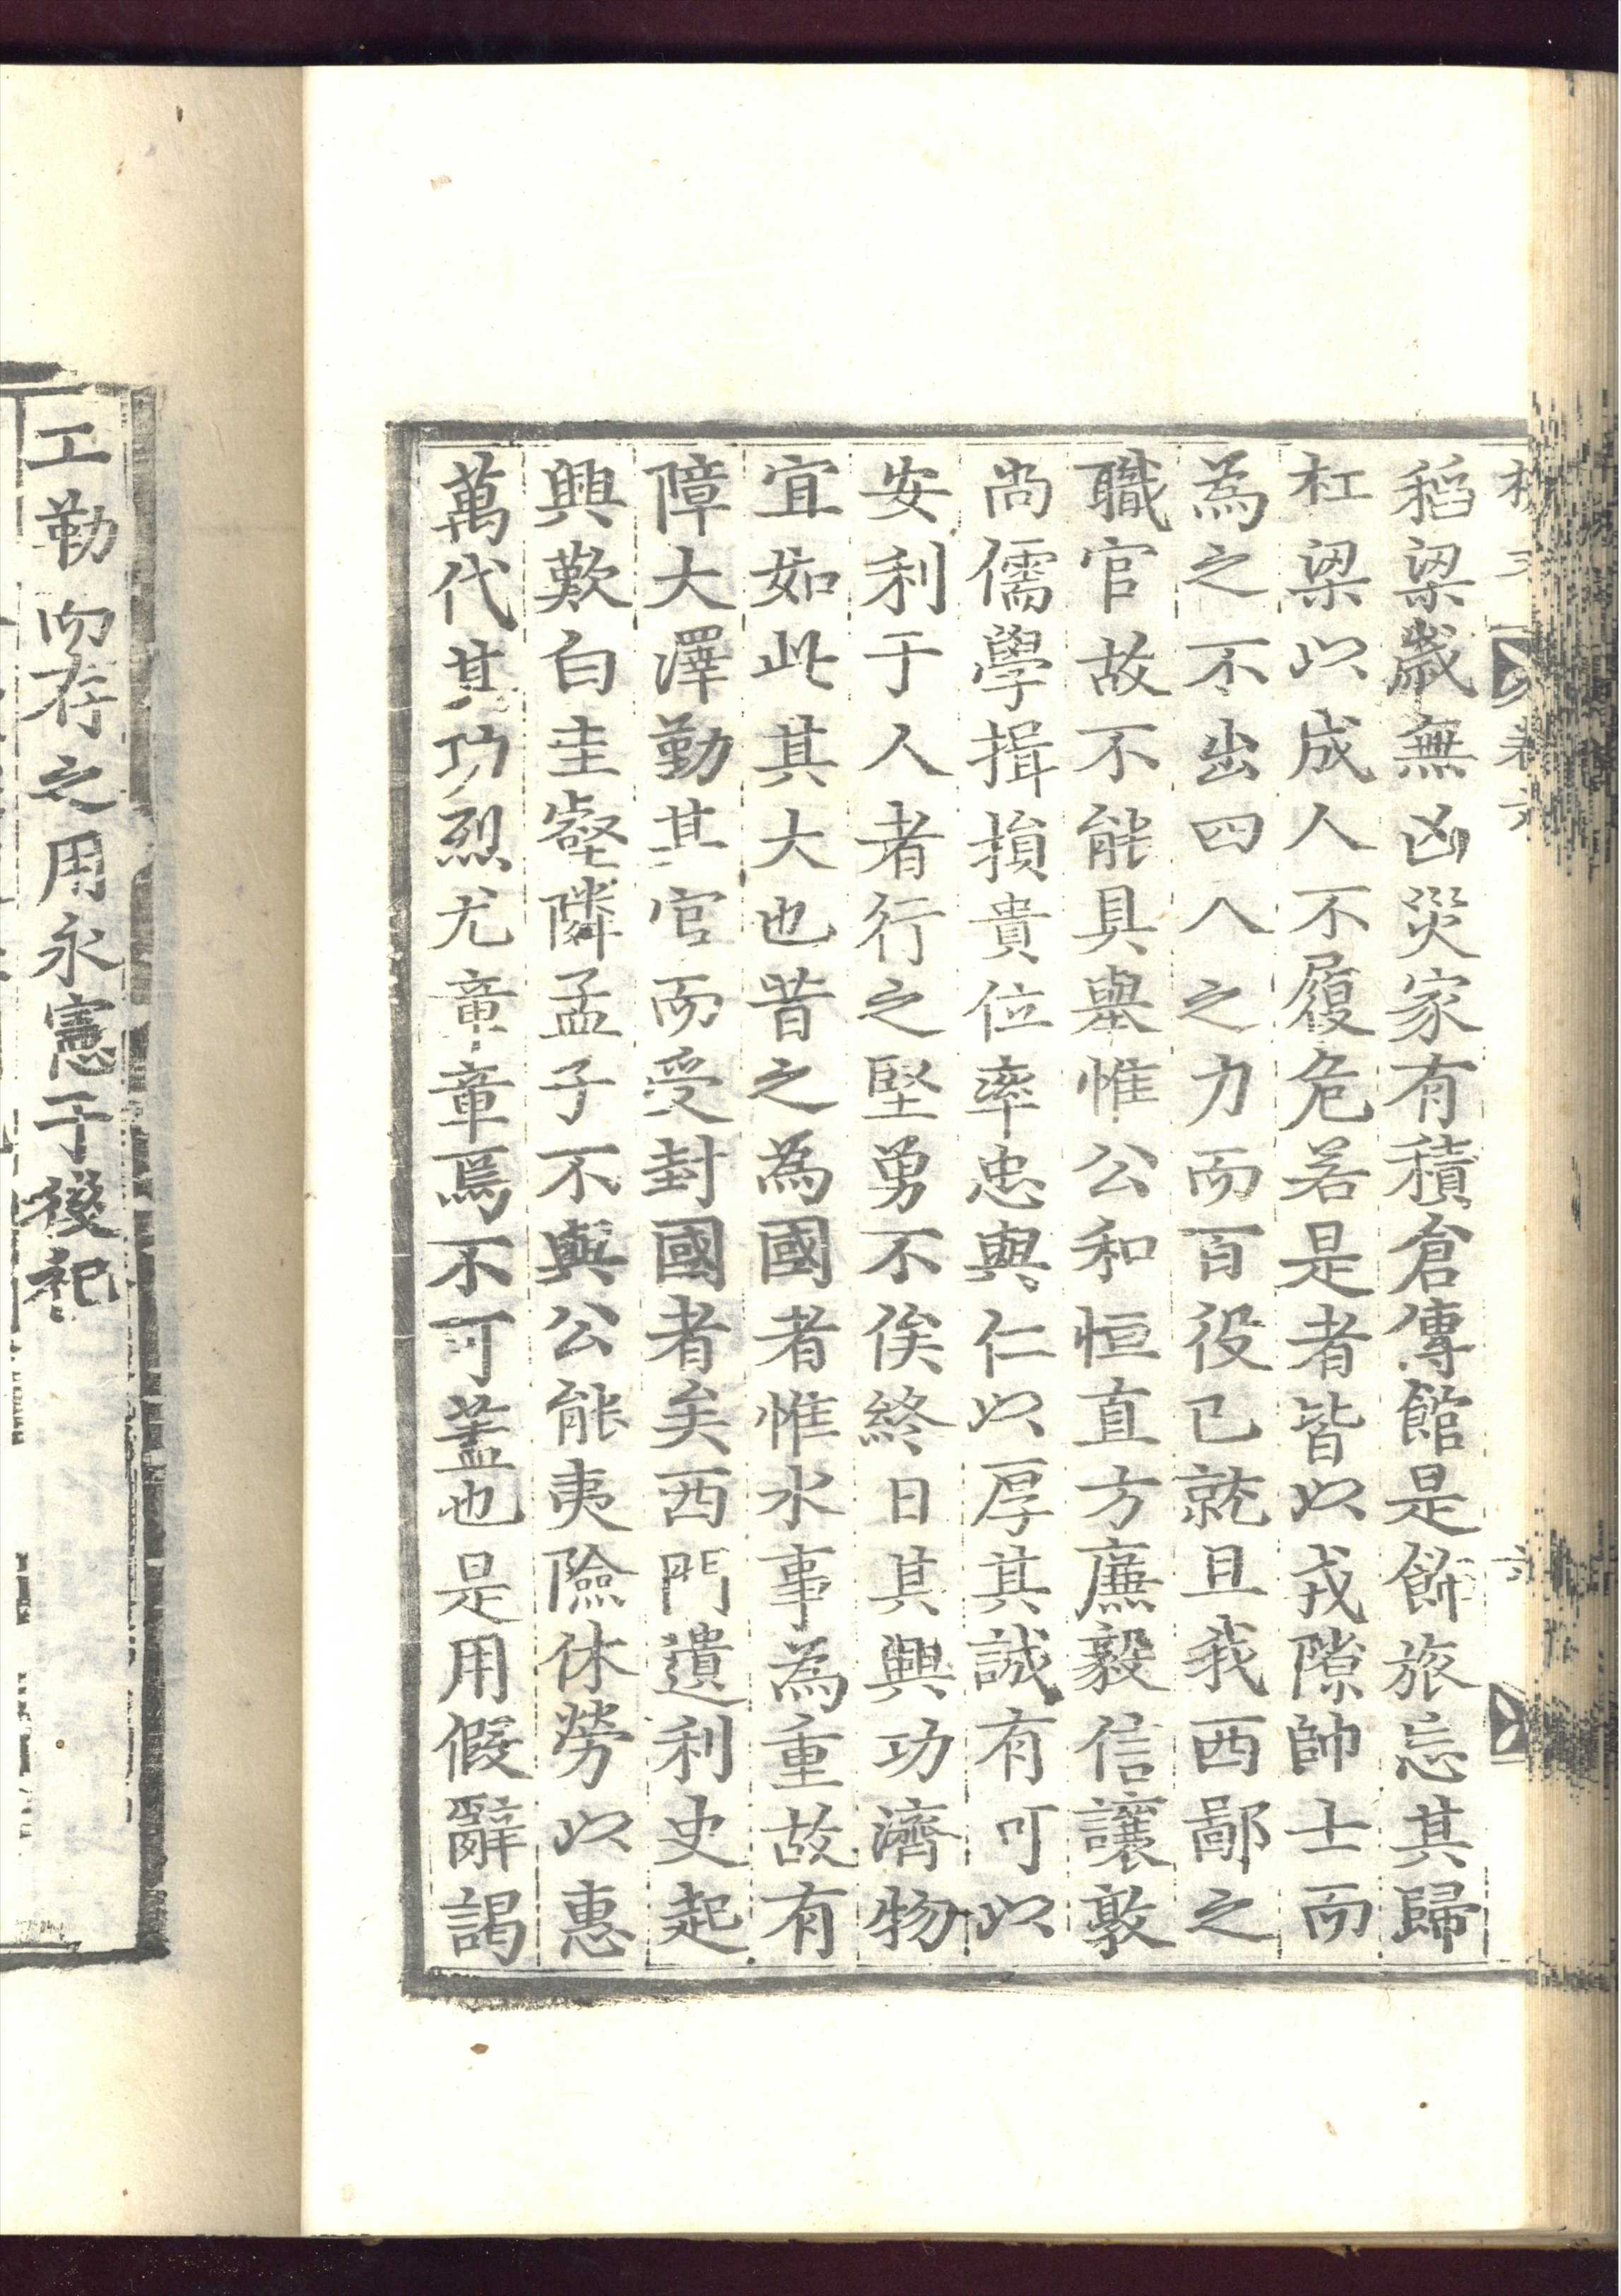 稻梁歲無凶災家有積倉傳館是飾旅忘其歸
杠梁以成人不履危若是者皆以戎隙帥士而
為之不出四人之力而百役已就且我西鄙之
職官故不能具舉惟公和恒直方廉毅信讓敦
尚儒學揖損貴位率忠與仁以厚其誠有可以
安利于人者行之堅勇不俟終日其興功濟物
宜如此其大也昔之為國者惟水事為重故有
障大澤勤其官而受封國者矣西門遺利史起
興歎白圭壑隣孟子不與公能夷險休勞以惠
萬代其功烈尤章章焉不可盖也是用假辭謁
工勒而存之用永憲于後祀